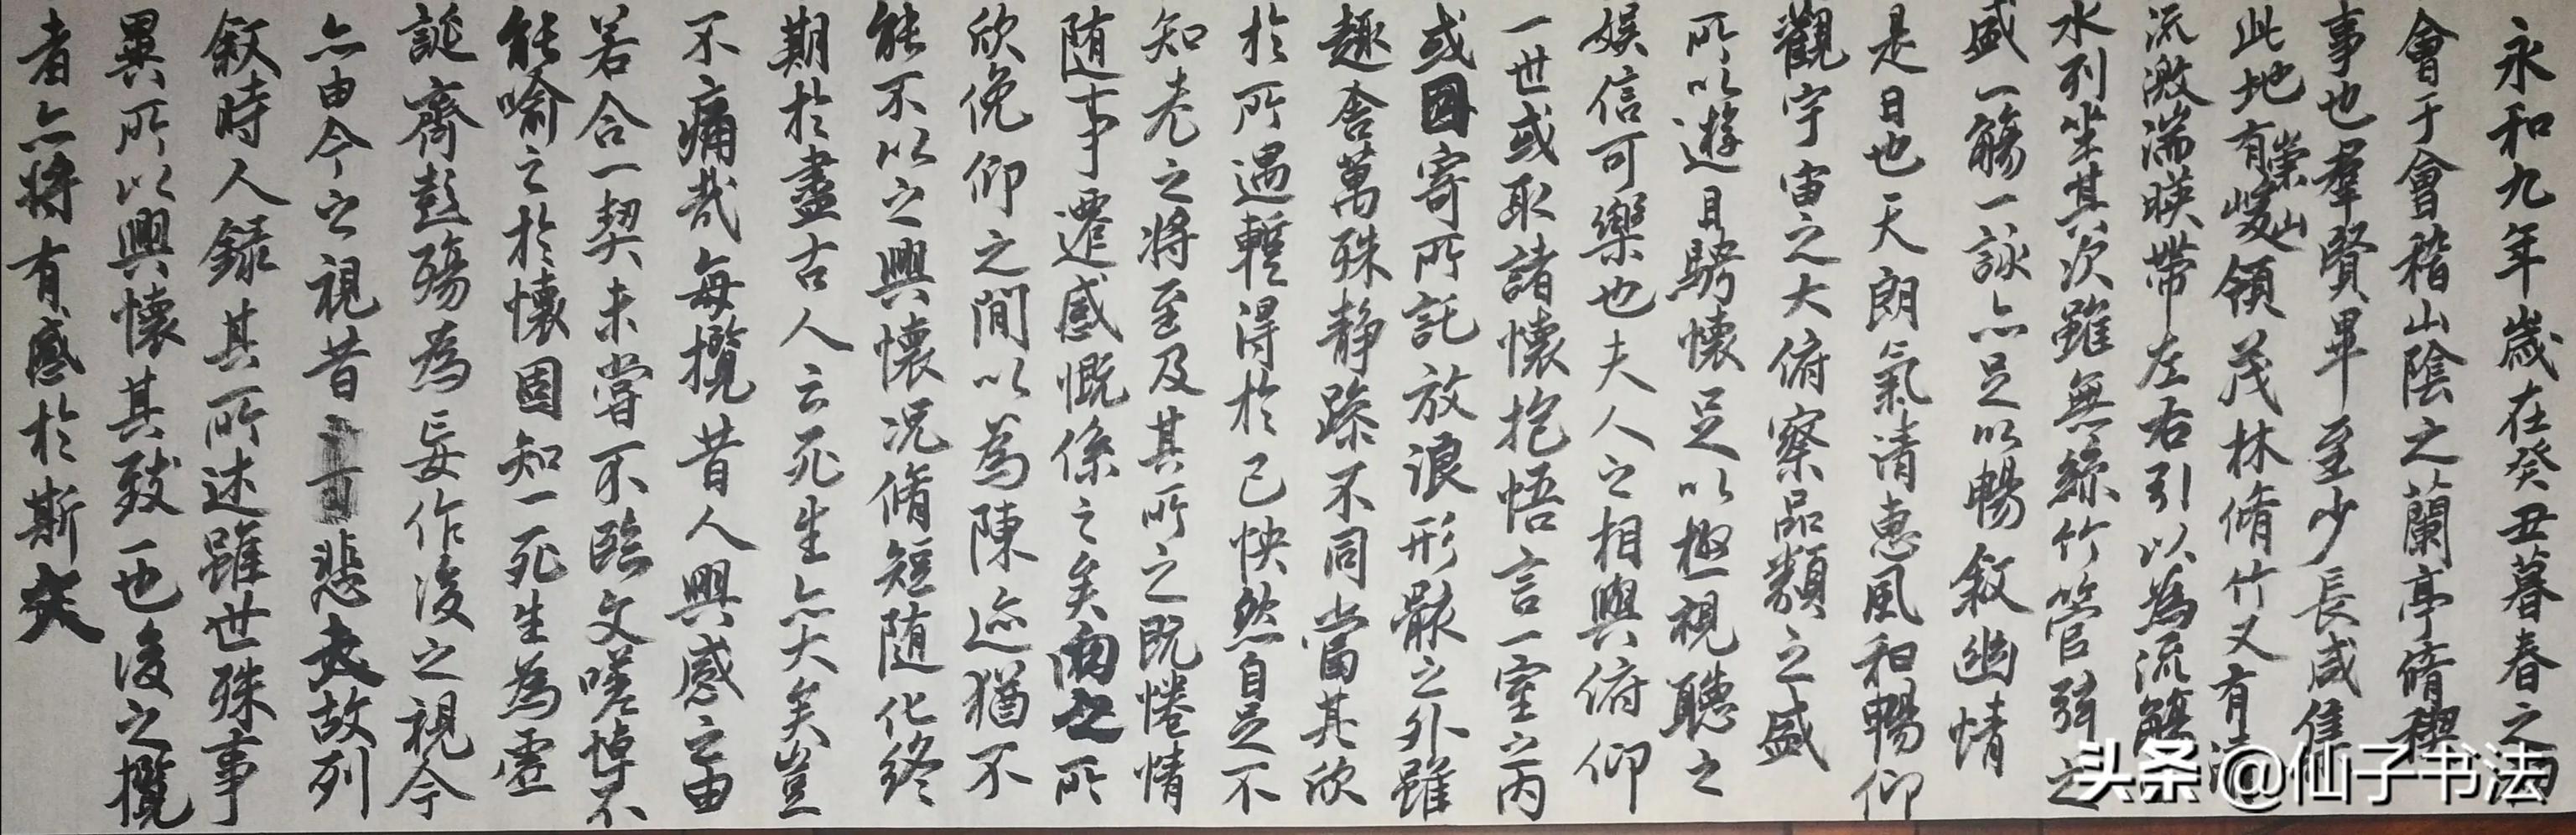 永和九年歲在癸丑暮春之初
會于會稽山陰之蘭亭脩稧
事也羣賢畢至少長咸集
此地有崇山峻領茂林脩竹又有清
流激湍暎帶左右引以為流觴
水列坐其次雖無絲竹管弦之
盛一觴一詠亦足以暢敘幽情
是日也天朗氣清惠風和暢仰
觀宇宙之大俯察品類之盛
所以遊目騁懷足以極視聽之
娛信可樂也夫人之相與俯仰
一世或取諸懷抱悟言一室之內
或因寄所託放浪形骸之外雖
趣舍萬殊静躁不同當其欣
於所遇蹔得於己怏然自足不
知老之將至及其所之既惓情
随事遷感慨係之矣向之所
欣俛仰之閒以為陳迹猶不
能不以之興懷況脩短随化終
期於盡古人云死生亦大矣豈
不痛哉每攬昔人興感之由
若合一契未嘗不臨文嗟悼不
能喻之於懷固知一死生為虛
誕齊彭殤為妄作後之視今
亦由今之視昔悲夫故列
敘時人錄其所述雖世殊事
異所以興懷其致一也後之攬
者亦將有感於斯文
头条@仙子书法